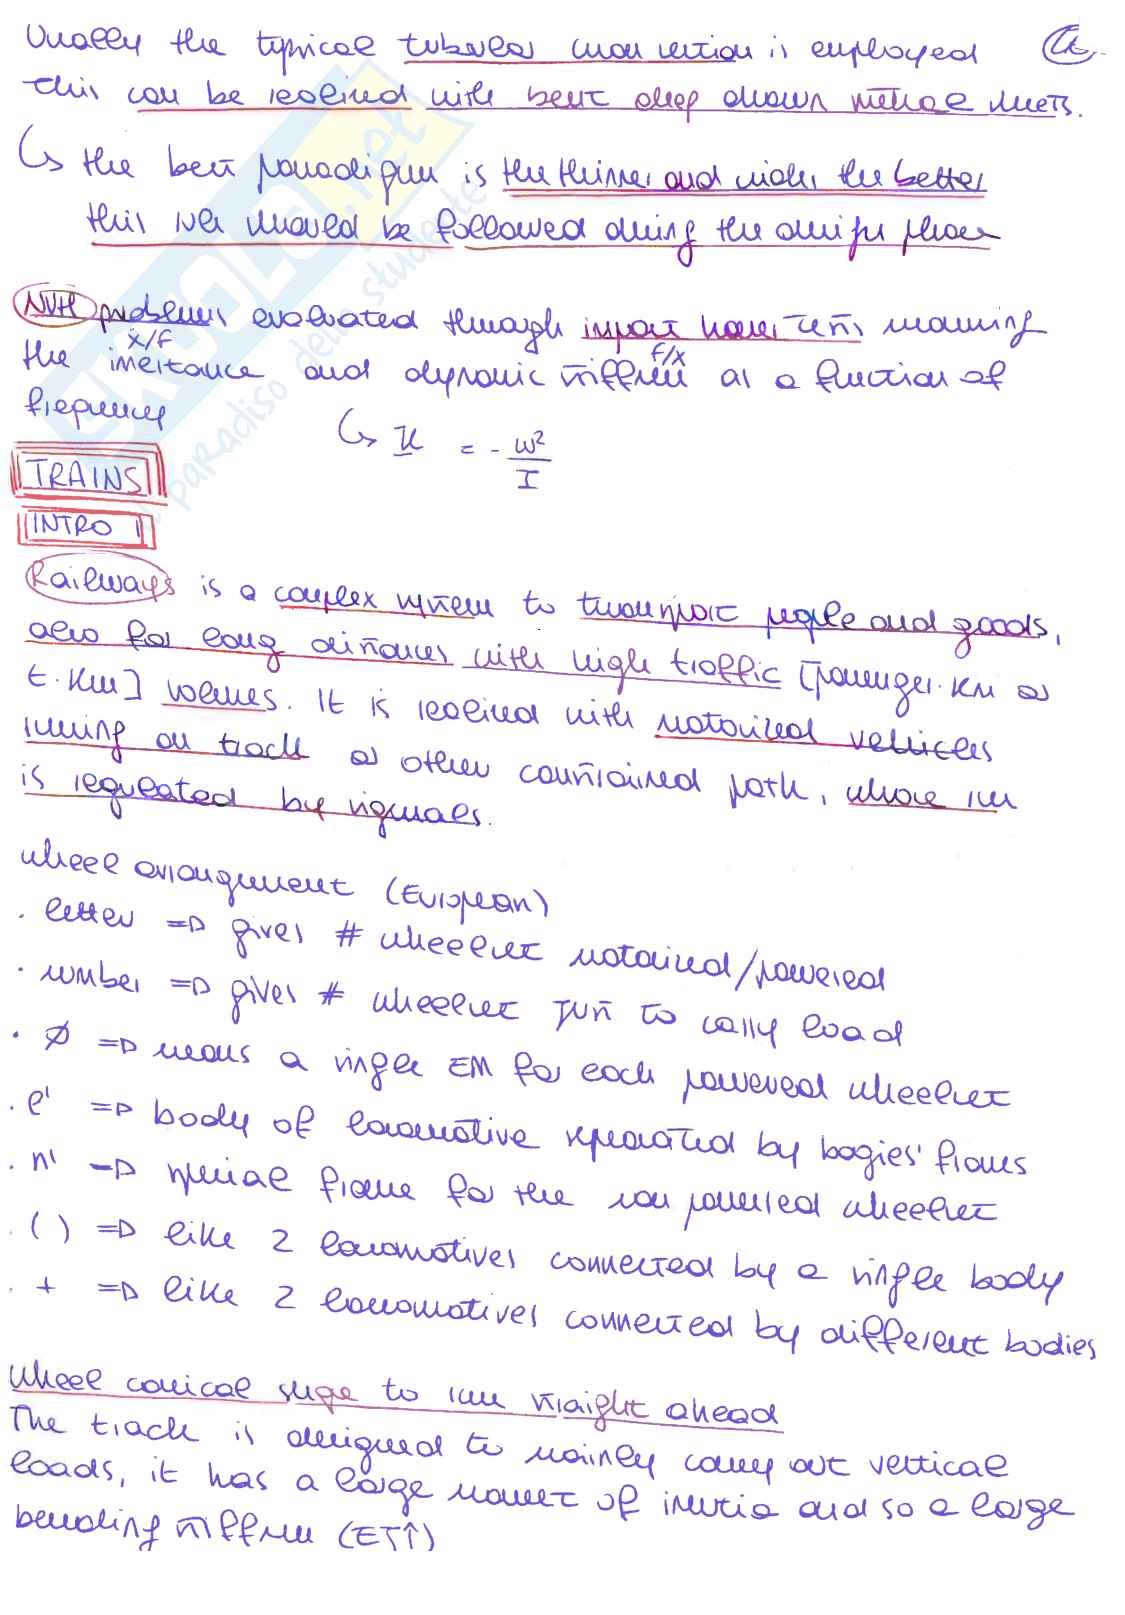 Usually the typical tubular cross section is employed
this can be realised with best deep drawn metal sheets.
↳ the best paradigm is the thinner and wider the better
this rule should be followed during the design phase
NVH problems evaluated through impact hammer tests measuring
ẍ/F F/x
the inertance and dynamic stiffness as a function of
frequency
↳ K = - ω²/I
TRAINS
INTRO
Railways is a complex system to transport people and goods,
also for long distances with high traffic [passenger·km or
t·km] volumes. It is realised with motorized vehicles
running on track or other constrained path, whose run
is regulated by signals.
wheel arrangement (European)
· letter => gives # wheelset motorized/powered
· number => gives # wheelset just to carry load
· ø => means a single EM for each powered wheelset
· l' => body of locomotive separated by bogies' frames
· n' -> special frame for the non powered wheelset
· ( ) => like 2 locomotives connected by a single body
· + => like 2 locomotives connected by different bodies
Wheel conical shape to run straight ahead
The track is designed to mainly carry out vertical
loads, it has a large moment of inertia and so a large
bending stiffness (EJ↑)
SKUOLA.net
il paradiso dello studente